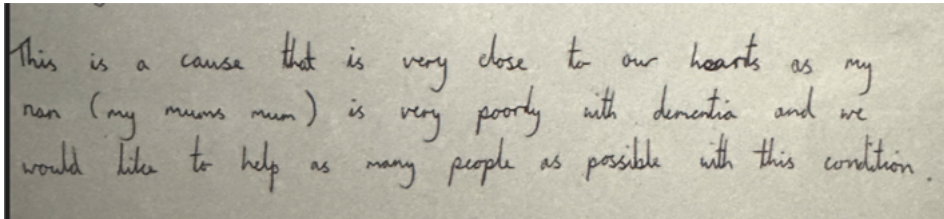 This is a cause that is very close to our hearts as my
nan (my mums mum) is very poorly with dementia and we
would like to help as many people as possible with this condition.